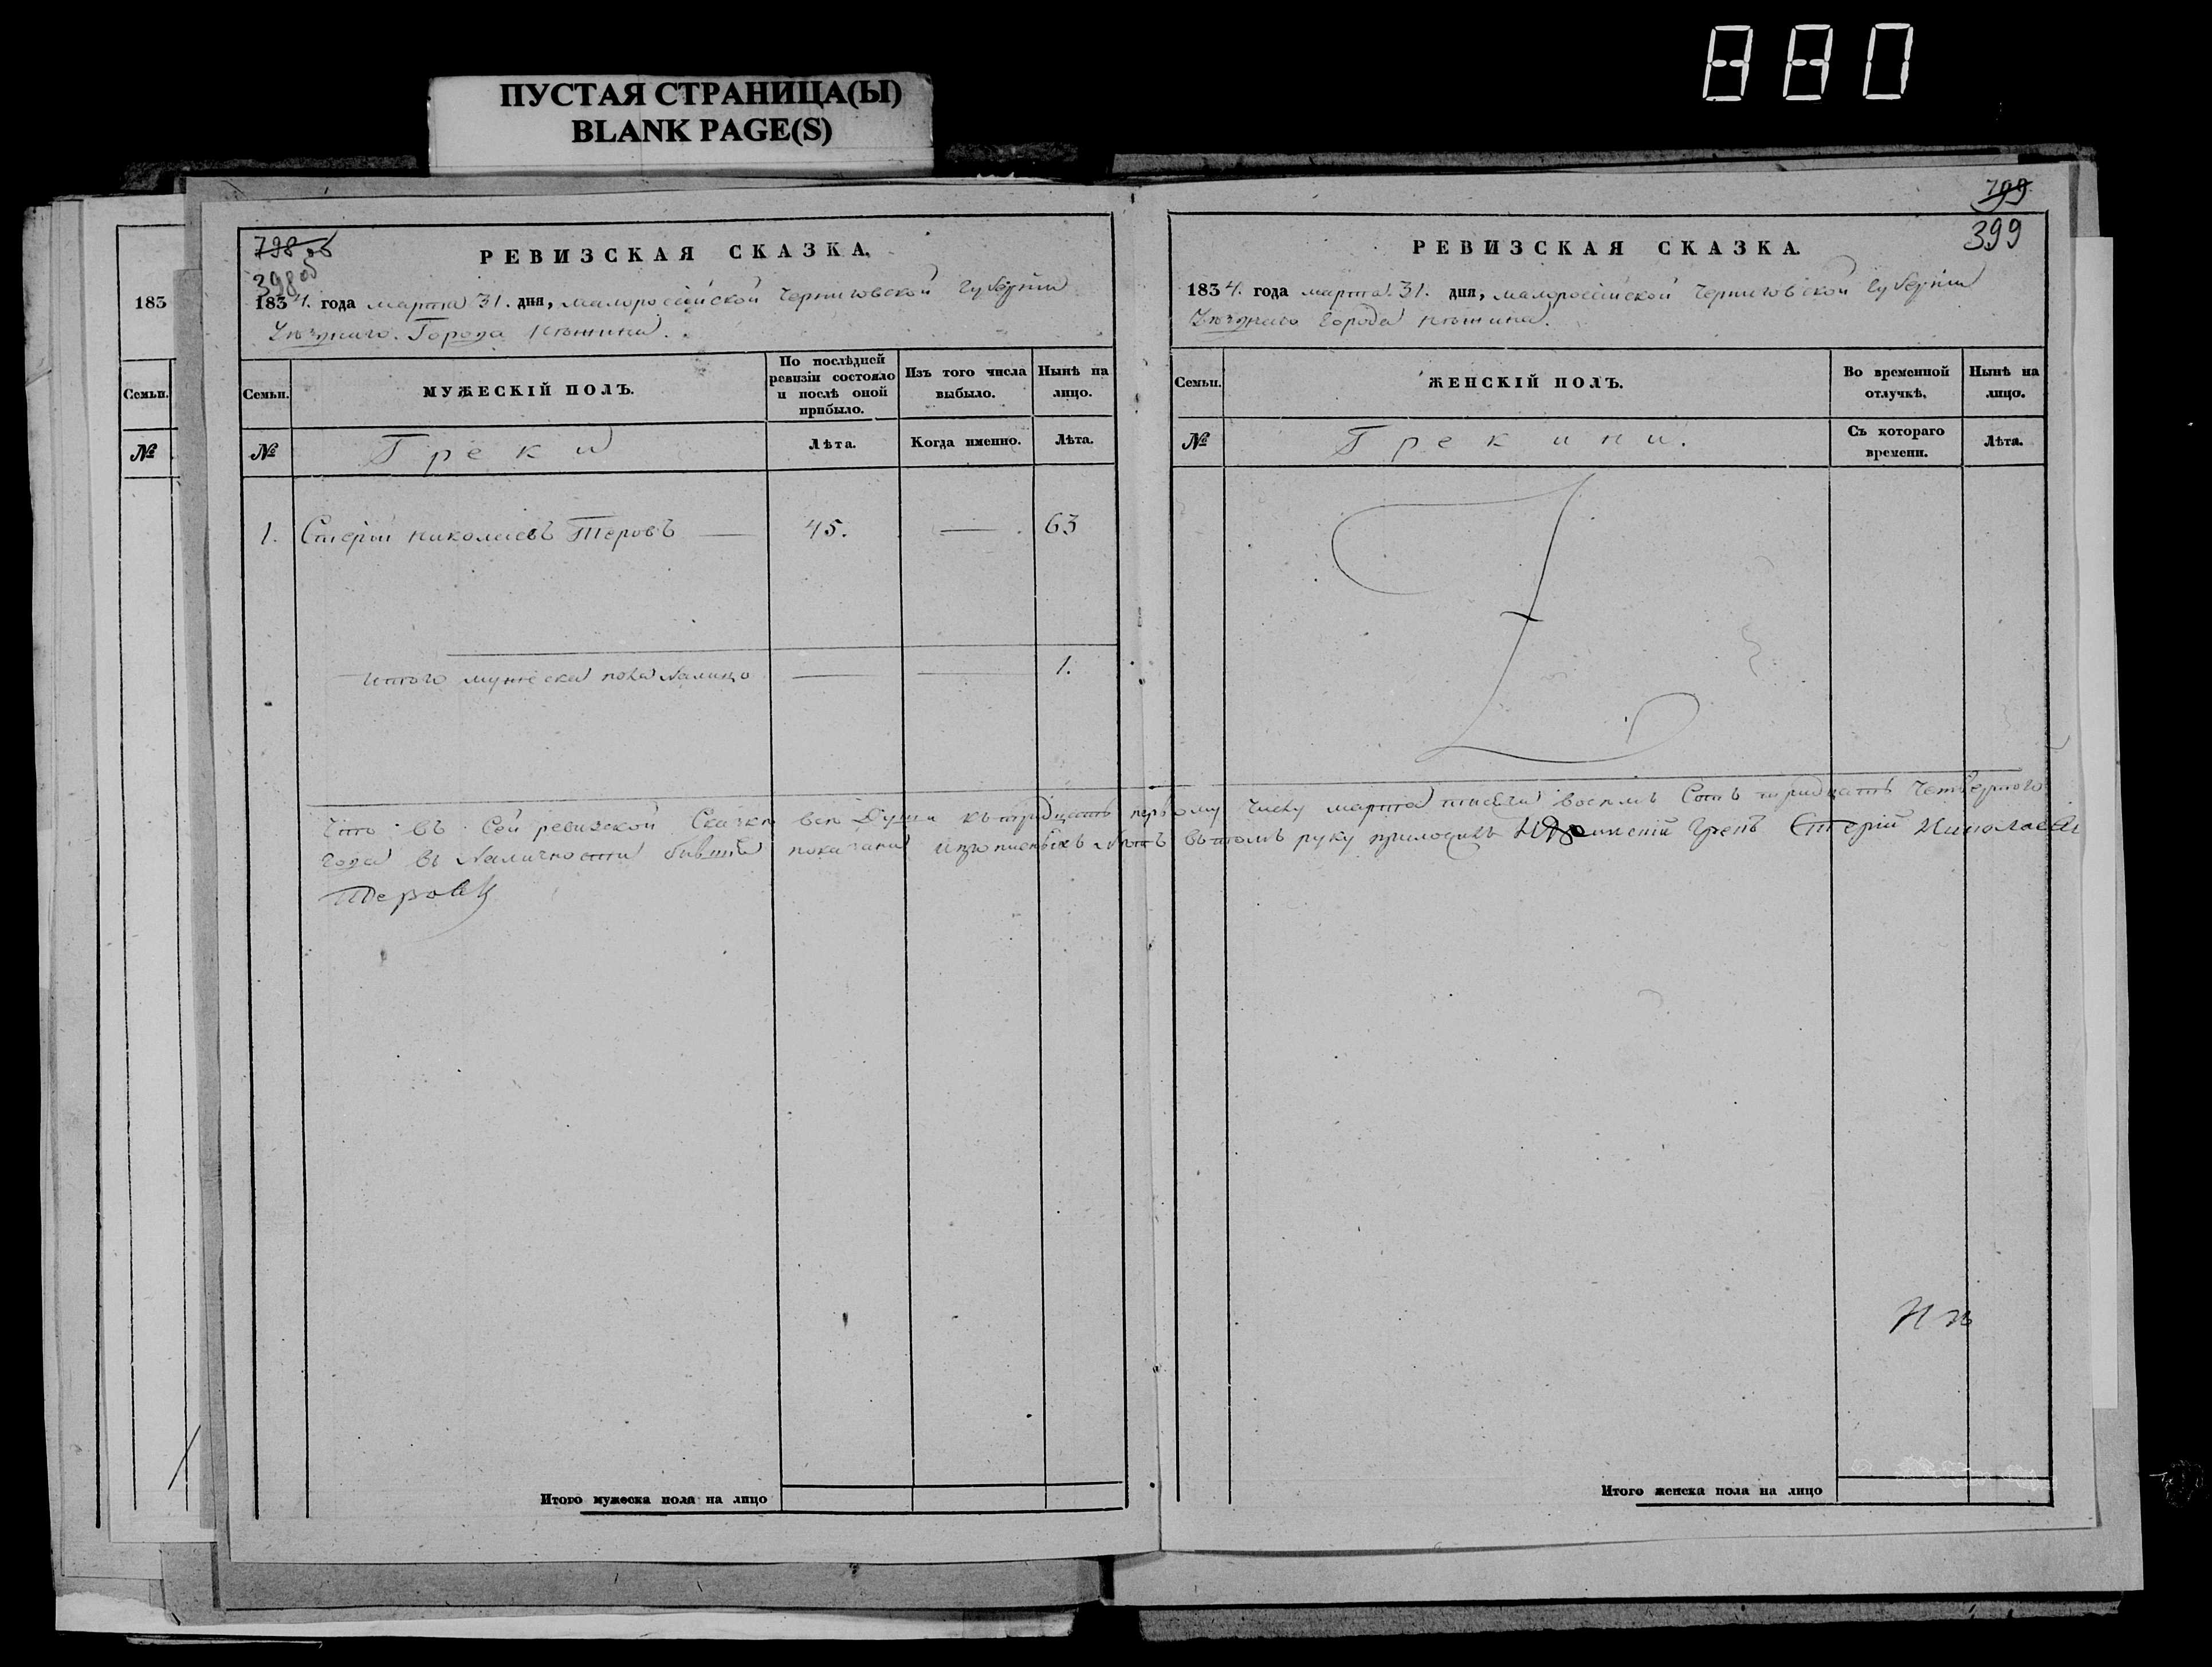 880
ПУСТАЯ СТРАНИЦА(Ы)
BLANK PAGE(S)
183
Семьи.
№
798 об
398 об
РЕВИЗСКАЯ СКАЗКА.
1834. года марта 31. дня, малороссійской Черниговской Губерніи
Уѣзднаго. Города Нѣжина.
Семьи.
МУЖЕСКІЙ ПОЛЪ.
По послѣдней ревизіи состояло и послѣ оной прибыло.
Изъ того числа выбыло.
Нынѣ на лицо.
№
Греки
Лѣта.
Когда именно.
Лѣта.
1. Стерій Николаевъ Теровъ — 45. — 63
Итого мужеска пола налицо — — 1.
Итого мужеска пола на лицо
799
399
РЕВИЗСКАЯ СКАЗКА.
1834. года марта. 31. дня, малороссійской Черниговской Губерніи
Уѣзднаго Города Нѣжина.
Семьи.
ЖЕНСКІЙ ПОЛЪ.
Во временной отлучкѣ.
Нынѣ на лицо.
№
Грекини.
Съ котораго времени.
Лѣта.
Что въ Сей ревизской Сказкѣ всѣ Души къ тридцать первому числу марта тысяча восемь Сотъ тридцать Четвертого
года въ Наличности бывшіе показаны и прописныхъ нѣтъ въ томъ руку приложилъ Нѣжинскій Грекъ Стерій Николаевъ
Теровъ
Итого женска пола на лицо